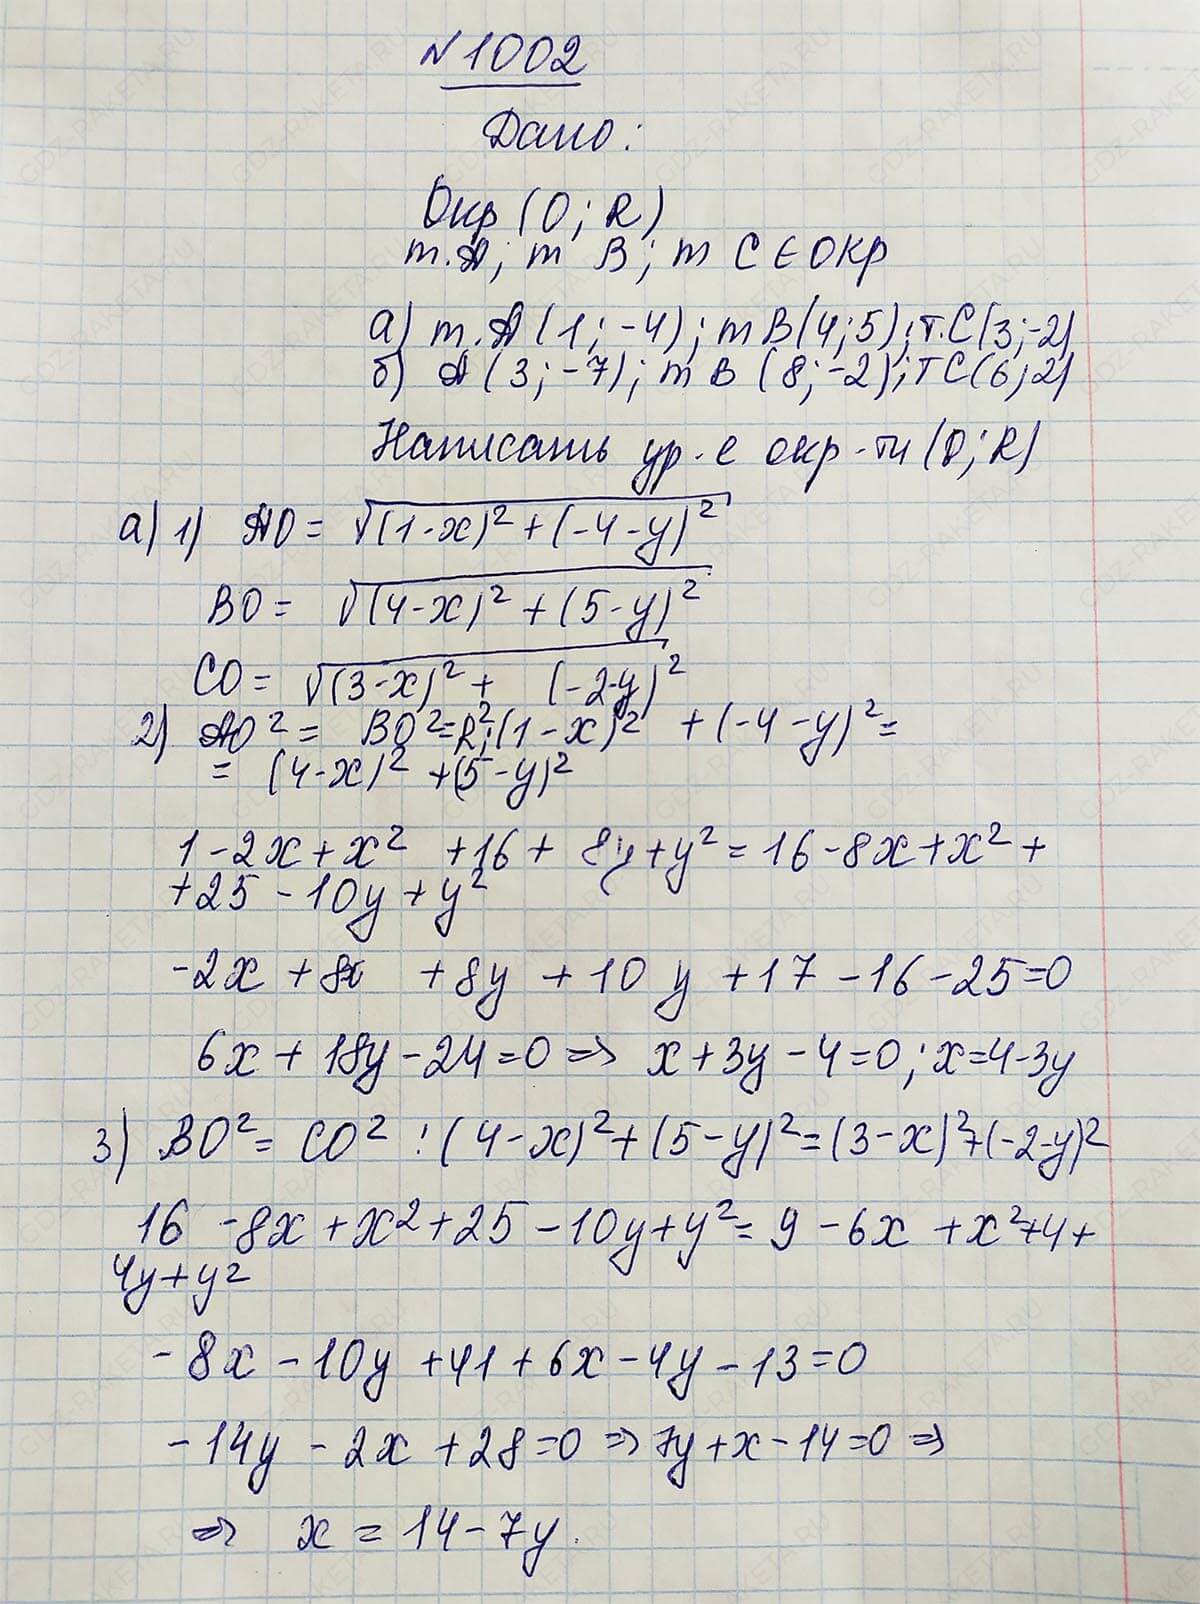 N 1002
Дано:
Окр (O; R)
т.А; т В; т С ∈ окр
а) т.А (1; -4); т В(4; 5); т.С(3; -2)
б) А (3; -7); т В (8; -2); т С(6; 2)
Написать ур-е окр-ти (O; R)
а) 1) AO = √(1-x)² + (-4-y)²
BO = √(4-x)² + (5-y)²
CO = √(3-x)² + (-2-y)²
2) AO² = BO² = R²; (1-x)² + (-4-y)² =
= (4-x)² + (5-y)²
1 - 2x + x² + 16 + 8y + y² = 16 - 8x + x² +
+ 25 - 10y + y²
-2x + 8x + 8y + 10y + 17 - 16 - 25 = 0
6x + 18y - 24 = 0 ⇒ x + 3y - 4 = 0; x = 4 - 3y
3) BO² = CO² : (4-x)² + (5-y)² = (3-x)² + (-2-y)²
16 - 8x + x² + 25 - 10y + y² = 9 - 6x + x² + 4 +
4y + y²
- 8x - 10y + 41 + 6x - 4y - 13 = 0
- 14y - 2x + 28 = 0 ⇒ 7y + x - 14 = 0 ⇒
⇒ x = 14 - 7y.